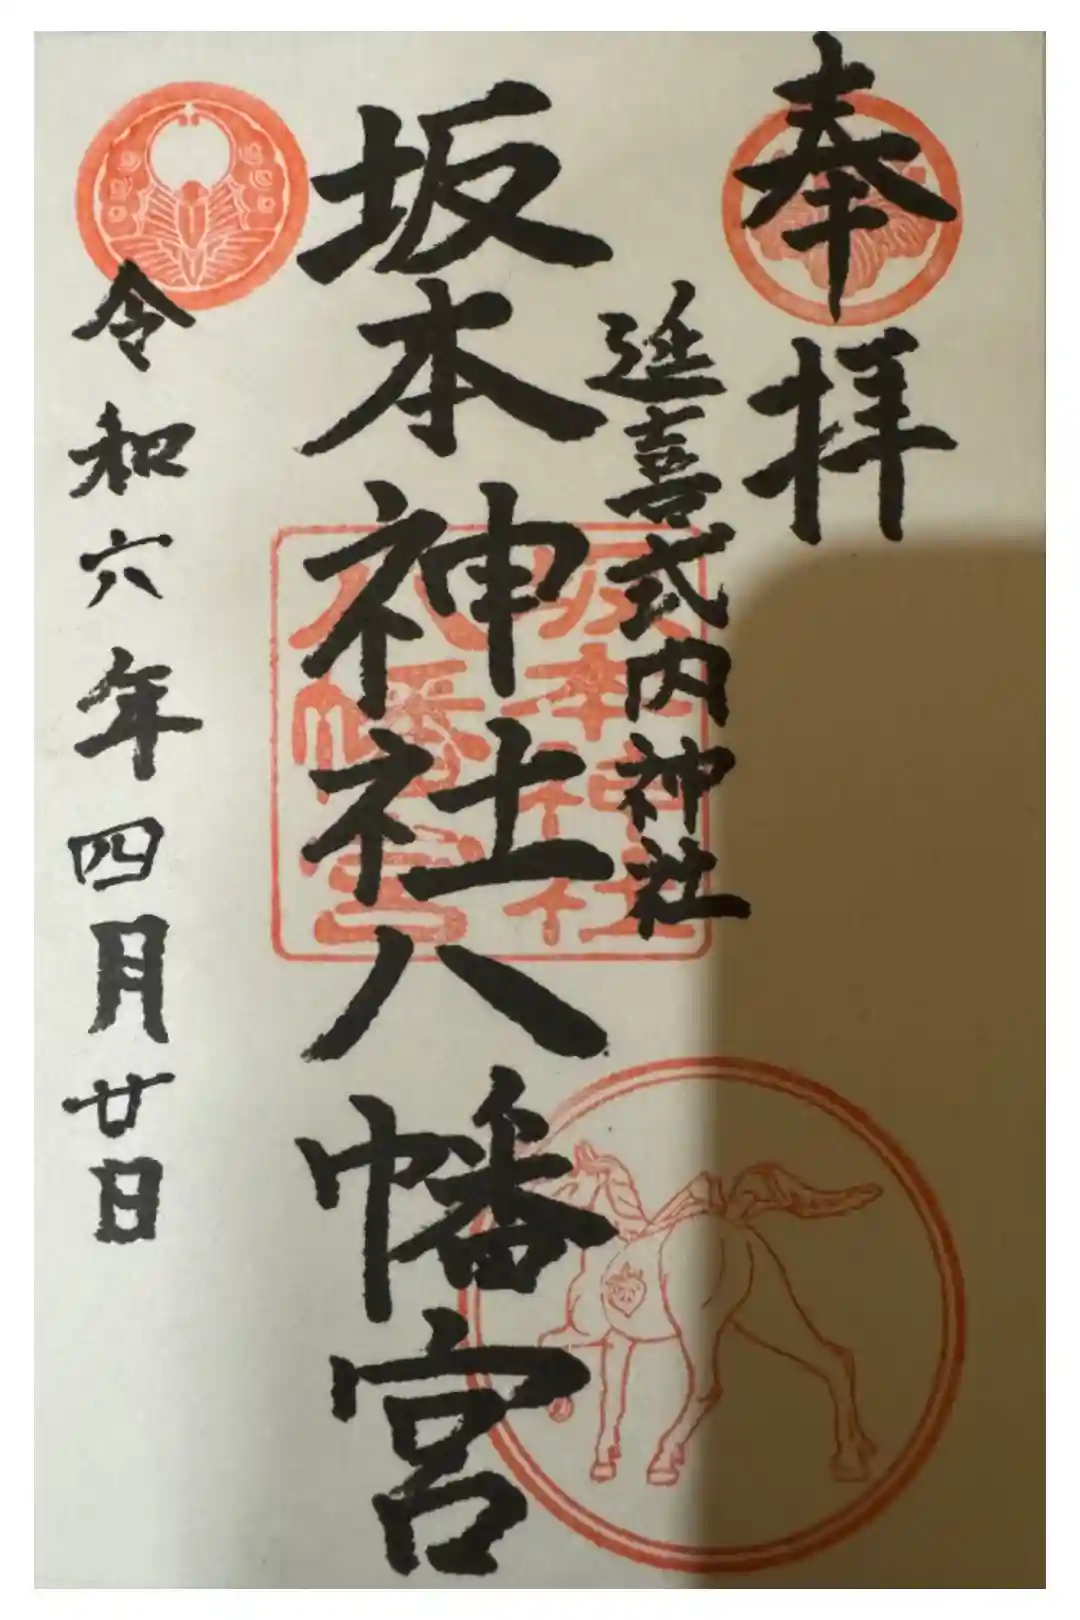 奉拝
延喜式内神社
坂本神社八幡宮
坂本神社
八幡宮
令和六年四月廿日